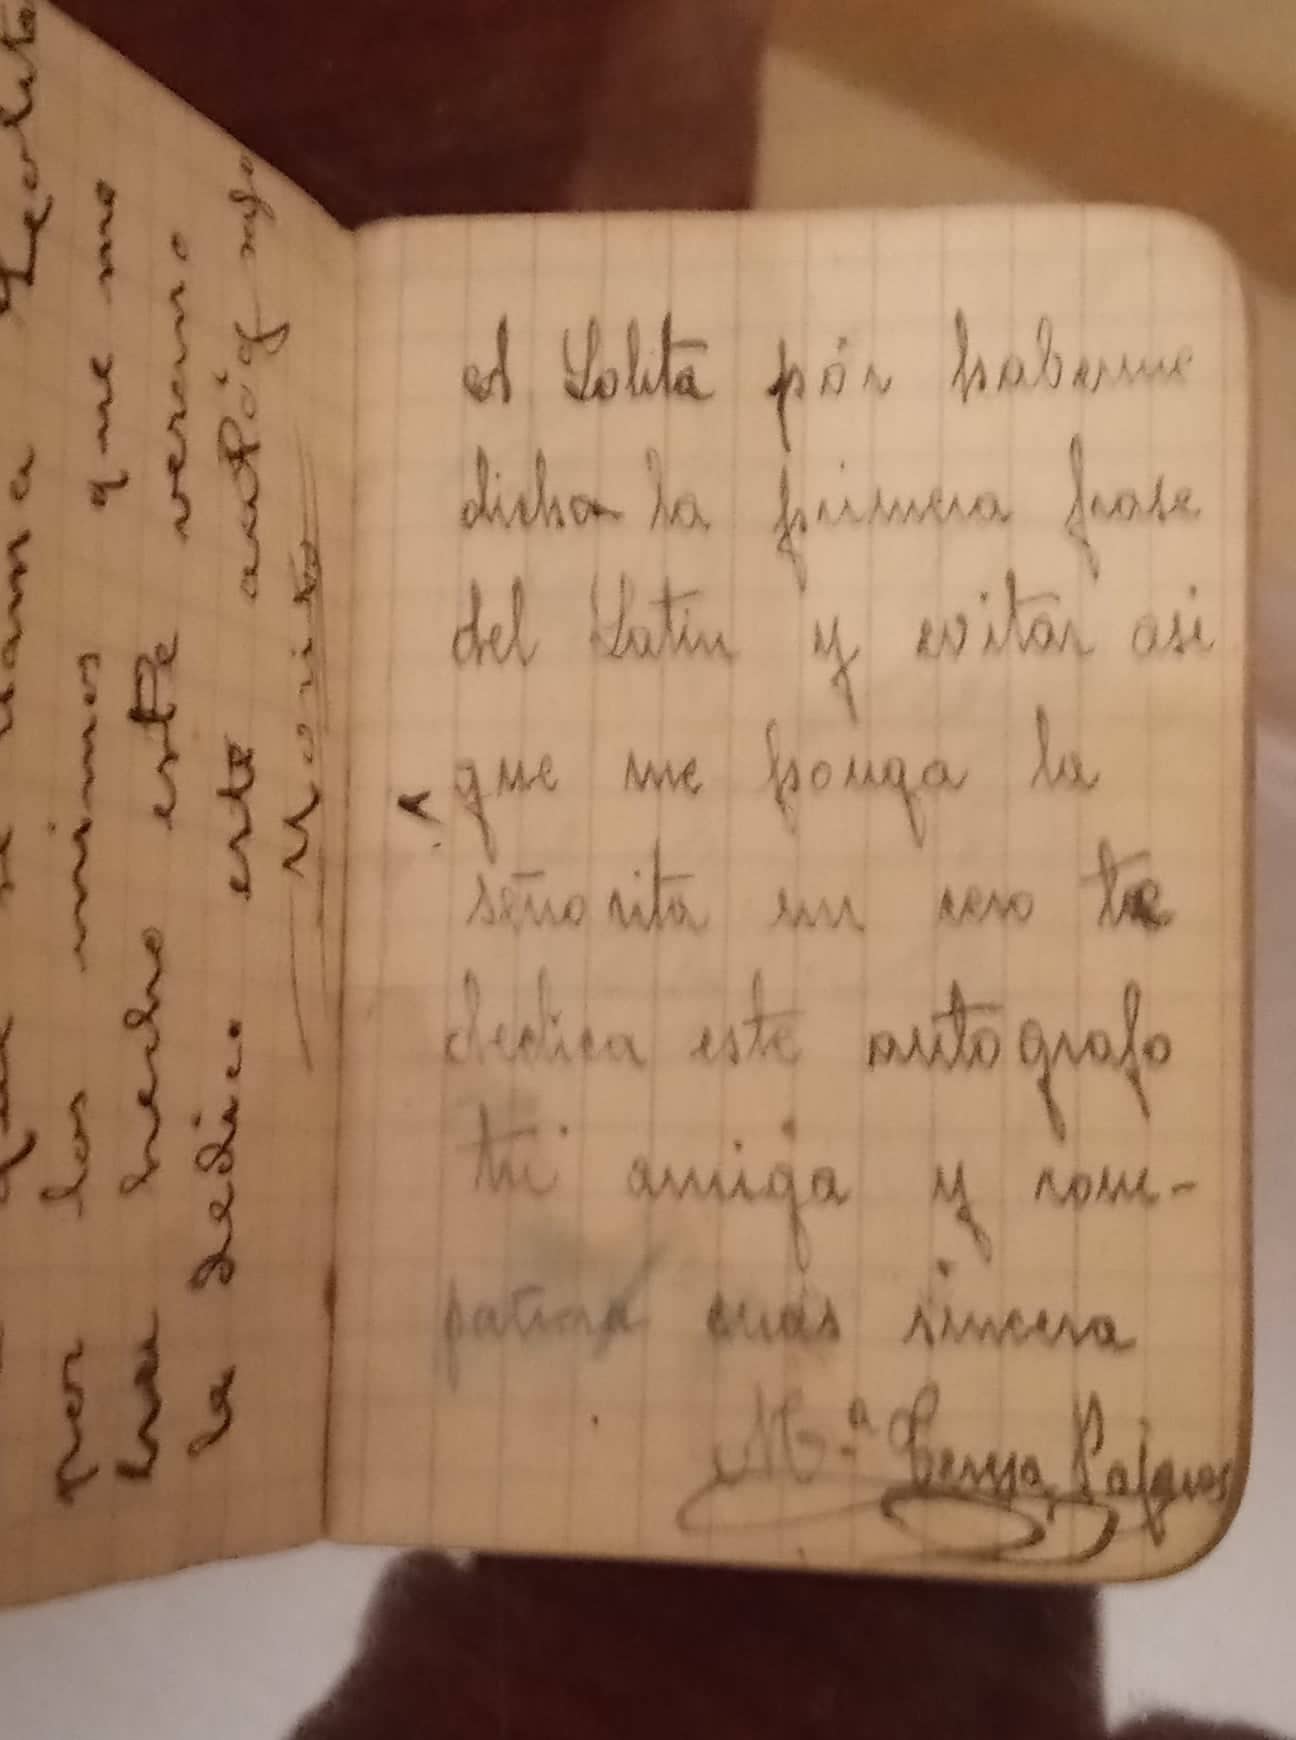 Lolita
por los mimos que me
has hecho este verano
la dedico este autógrafo
A Lolita pór haberme
dicho la primera frase
del Latin y evitar asi
que me ponga la
señorita un cero te
dedica este autografo
tu amiga y com-
pañera más sincera
Mª Teresa